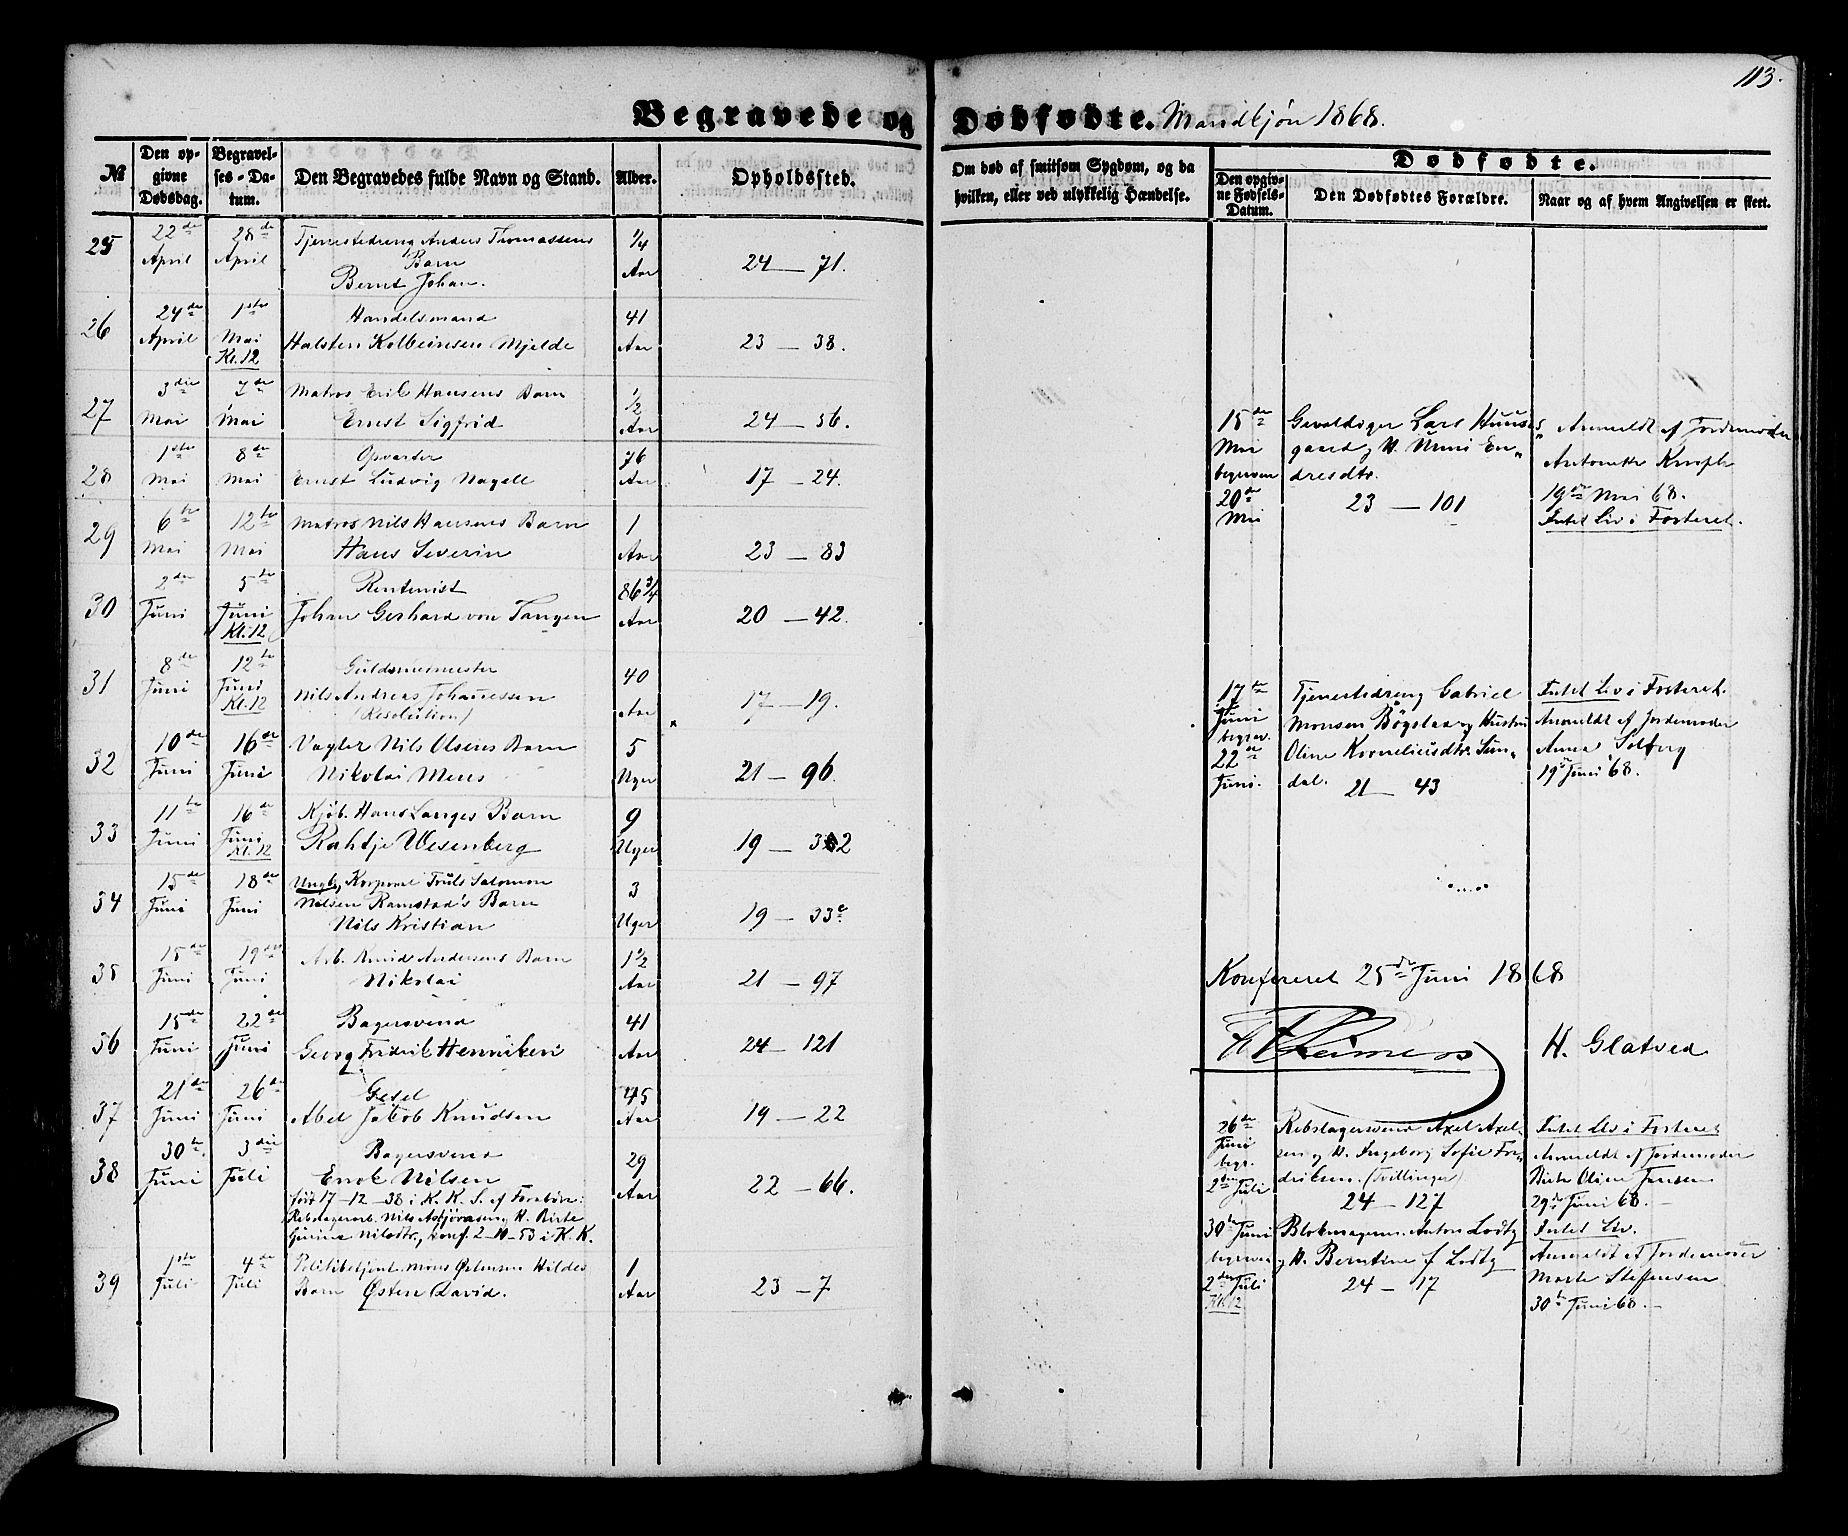 113.
Begravede og Dødfødte. Mandkjøn 1868.
№
Den opgivne Dødsdag.
Begravelses-Datum.
Den Begravedes fulde Navn og Stand.
Alder.
Opholdssted.
Om død af smitsom Sygdom, og da hvilken, eller ved ulykkelig Hændelse.
Dødfødte.
Den opgivne Fødsels-Datum.
Den Dødfødtes Forældre.
Naar og af hvem Angivelsen er skeet.
25 22de April 28de April Tjenestedreng Anders Thomassens 1/4 Aar 24 — 71.
Barn
Bernt Johan.
26 24de April 1ste Mai Kl. 12 Handelsmand 41 Aar 23 — 38.
Halsten Kolbeinsen Mjelde
27 3die Mai 7de Mai Matros Erik Hansens Barn 1/2 Aar 24 — 56.
Ernst Sigfrid
28 1ste Mai 8de Mai Opvarter 76 Aar 17 — 24.
Ernst Ludvig Nagell
29 6te Mai 12te Mai Matros Nils Hansens Barn 1 Aar 23 — 83
Hans Severin
30 2den Juni 5te Juni Kl. 12 Rentenist 86 3/4 Aar 20 — 42.
Johan Gerhard von Tangen
31 8de Juni 12te Juni Kl. 12 Guldsmemester 40 Aar 17 — 19.
Nils Andreas Johannessen
(Resolution)
32 10de Juni 16de Juni Vagter Nils Olsens Barn 5 Uger 21 — 96.
Nikolai Mens
33 11te Juni 16de Juni Kl. 12 Kjøb. Hans Langes Barn 9 Uger 19 — 32
Rahtje Wesenberg
34 15de Juni 18de Juni Korporal Truls Salomon 3 Uger 19 — 33c
Nilsen Ramstad's Barn
Nils Kristian
35 15de Juni 19de Juni Arb. Knud Andersens Barn 1 1/2 Aar 21 — 97
Nikolai
36 15de Juni 22de Juni Bagersvend 41 Aar 24 — 121
Georg Fridrik Henriksen
37 21de Juni 26de Juni Gesel 45 Aar 19 — 22
Abel Jakob Knudsen
38 30te Juni 3die Juli Bagersvend 29 Aar 22 — 66.
Enok Nilsen
født 17-12-38 i K. K. S. af Forældre:
Rebslagerarb. Nils Asbjørnsen og H. Birte
Nilsdtr., konf. 2-10-53 i K. K.
39 1ste Juli 4de Juli Politibetjent Mons Østensen Hildes 1 Aar 23 — 7
Barn Østen David.
15de Mai begraven 20de Mai
Gevaldiger Lars Huus-
gaard og H. Unni En-
dresdtr.
23 — 101
Anmeldt af Jordemoder
Antonette Knoph
19de Mai 68.
Intet Liv i Fosteret.
17te Juni begrav. 22de Juni.
Tjenestedreng Gabriel
Monsen Bøgslaa og Hustru
Oline Korneliusdtr. Sun-
dal. 21 — 43
Intet Liv i Fosteret.
Anmeldt af Jordemoder
Anna Solberg
19de Juni 68.
Konfereret 25de Juni 1868
H. Glatved
26de Juni begr. 2den Juli
Rebslagersvend Axel Axel-
sen og H. Ingeborg Sofie Fre-
driksen. (Tvillinger)
24 — 127
Intet Liv i Fosteret
Anmeldt af Jordemoder
Birte Oline Jansen
29de Juni 68. —
30te Juni begraven 2den Juli Kl. 12
Blokmagersv. Anton Lodtz
og H. Berntine f. Lodtz
24 — 17
Intet Liv.
Anmeldt af Jordemoder
Marte Steffensen
30te Juni 68. —